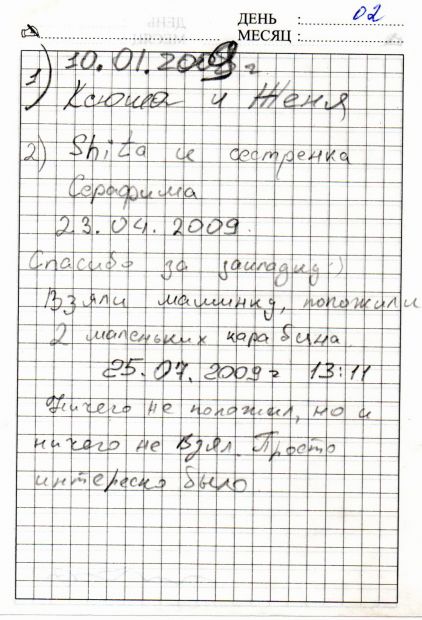 ДЕНЬ : 02
МЕСЯЦ :
1) 10.01.2009 г
Ксюша и Женя
2) Shita и сестренка
Серафима
23.04.2009.
Спасибо за закладку:)
Взяли машинку, положили
2 маленьких карабина.
25.07.2009 г 13:11
Ничего не положил, но и
ничего не взял. Просто
интересно было.